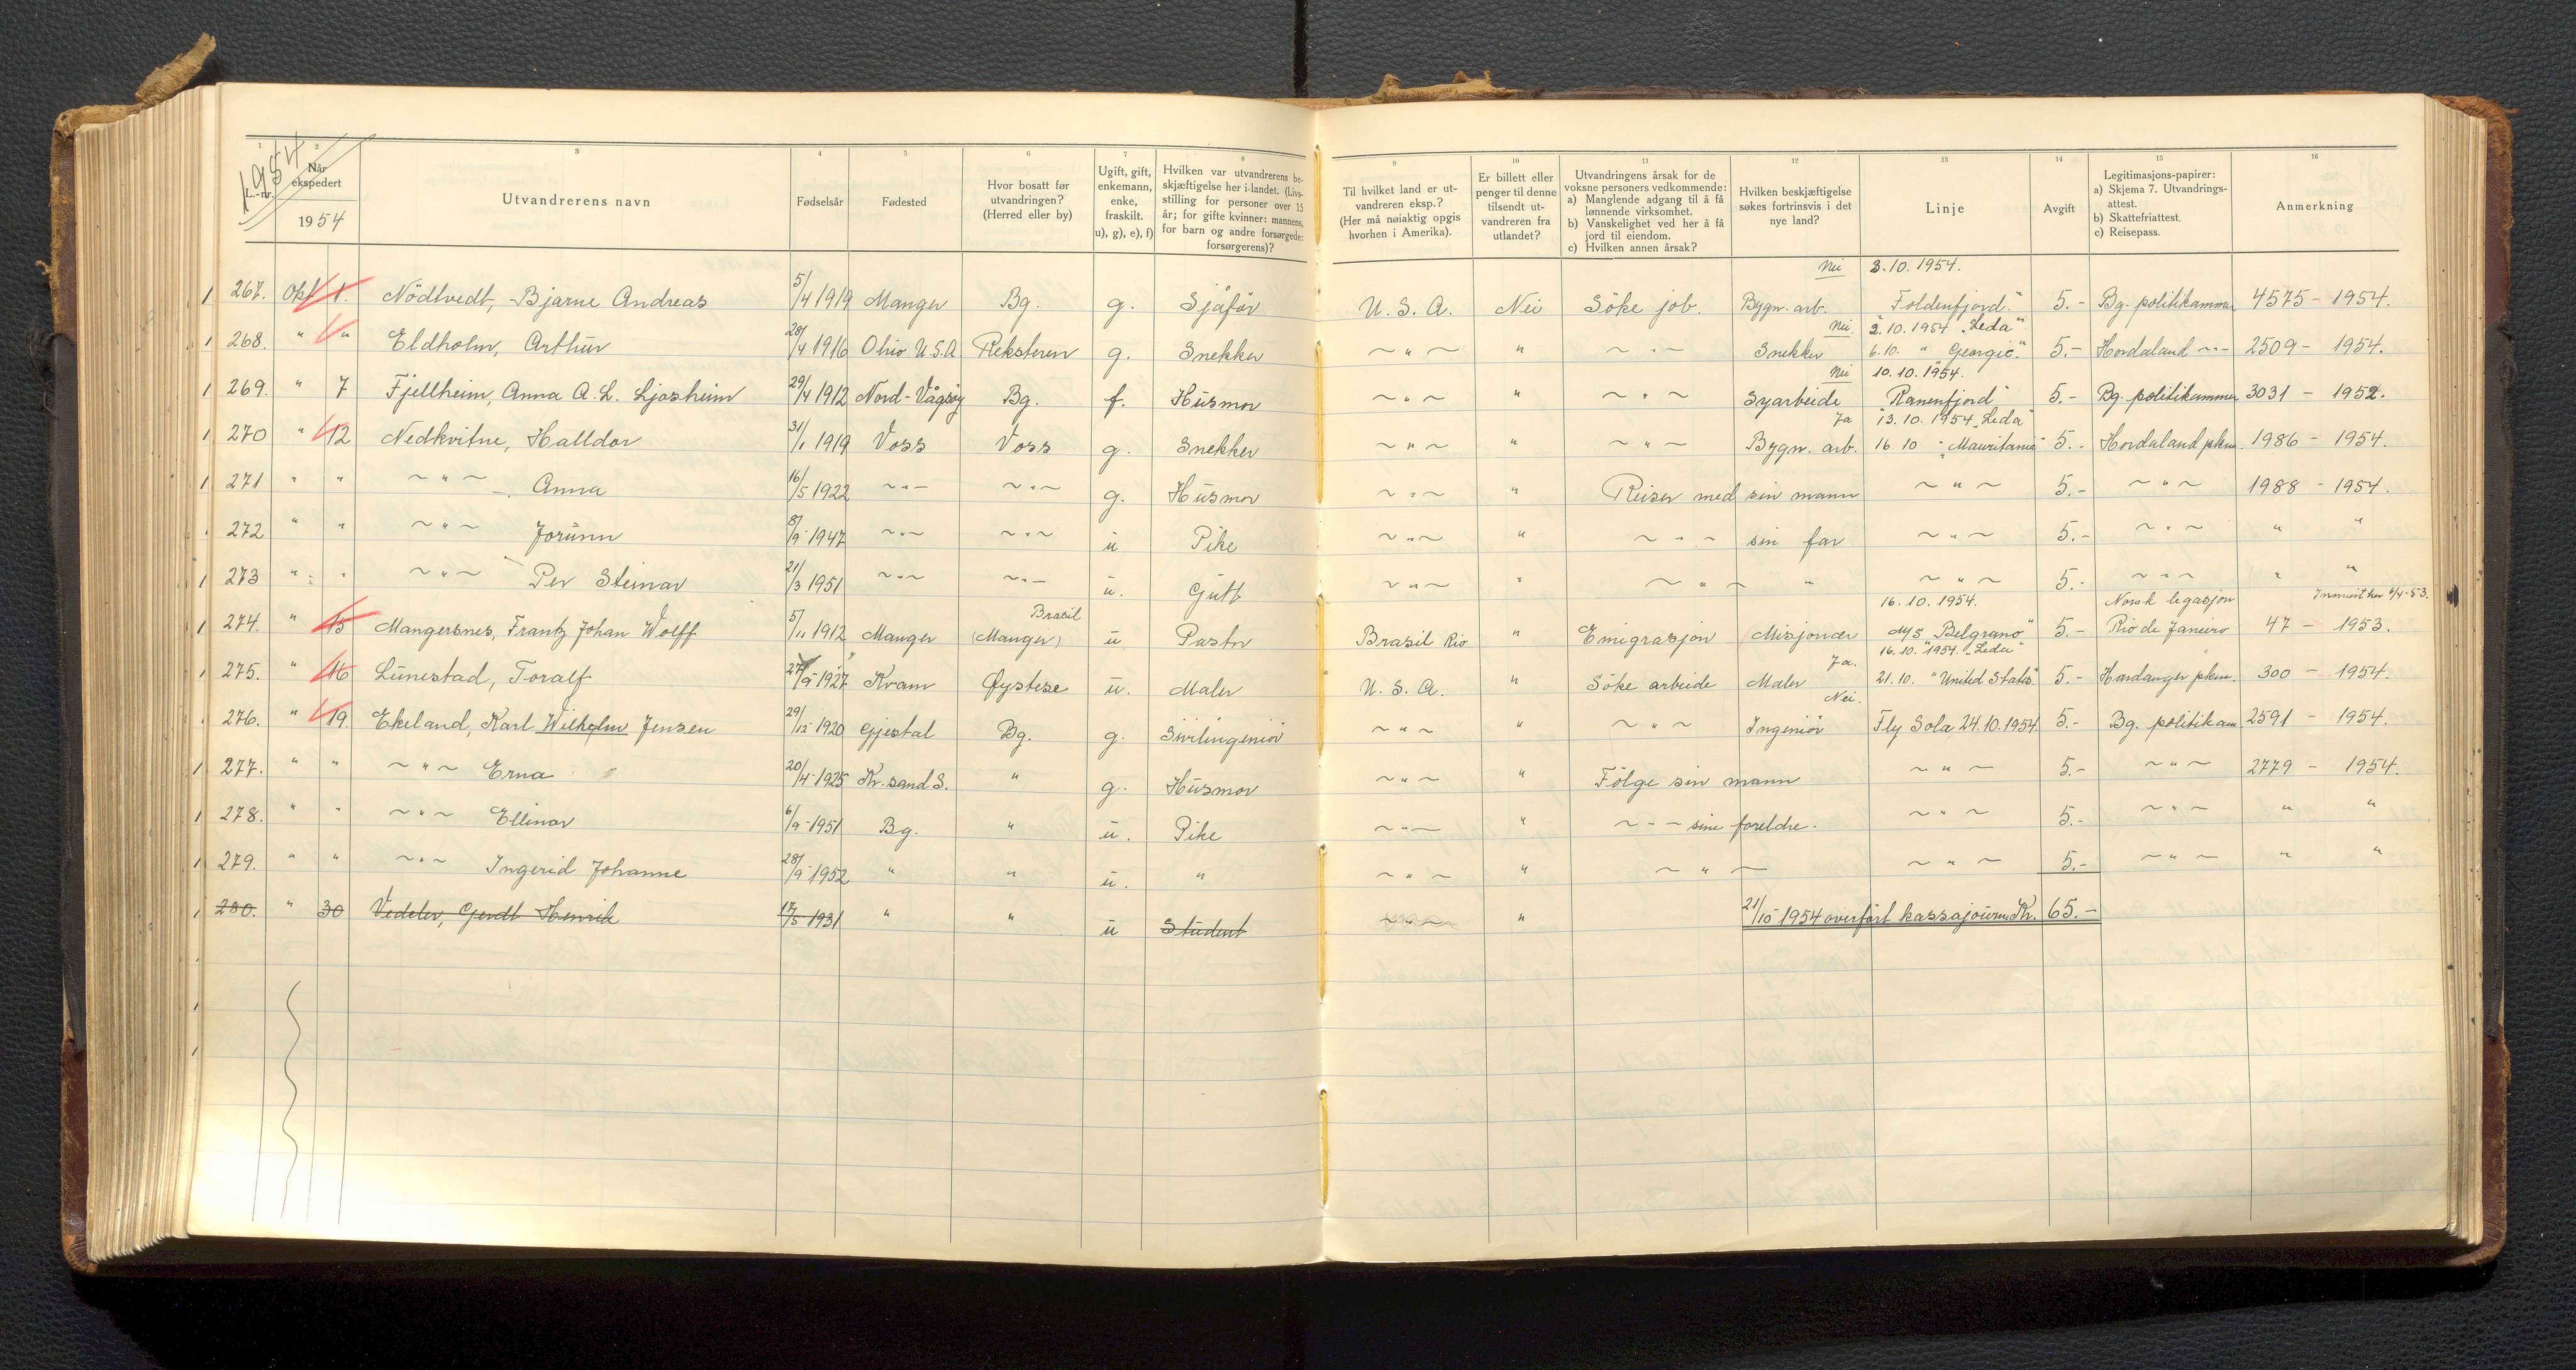 1954
1 2 3 4 5 6 7 8 9 10 11 12 13 14 15 16
L.-nr. | Når ekspedert 1954 | Utvandrerens navn | Fødselsår | Fødested | Hvor bosatt før utvandringen? (Herred eller by) | Ugift, gift, enkemann, enke, fraskilt. u), g), e), f) | Hvilken var utvandrerens beskjæftigelse her i landet. (Livsstilling for personer over 15 år; for gifte kvinner: mannens, for barn og andre forsørgede: forsørgerens)? | Til hvilket land er utvandreren eksp.? (Her må nøiaktig opgis hvorhen i Amerika). | Er billett eller penger til denne tilsendt utvandreren fra utlandet? | Utvandringens årsak for de voksne personers vedkommende: a) Manglende adgang til å få lønnende virksomhet. b) Vanskelighet ved her å få jord til eiendom. c) Hvilken annen årsak? | Hvilken beskjæftigelse søkes fortrinsvis i det nye land? | Linje | Avgift | Legitimasjons-papirer: a) Skjema 7. Utvandringsattest. b) Skattefriattest. c) Reisepass. | Anmerkning
Nei 3.10.1954.
1 267. Okt 1. Nödtvedt, Bjarne Andreas 5/4 1919 Manger Bg. g. Sjåför U.S.A. Nei Söke job. Bygn. arb. "Foldenfjord". 5.- Bg. politikammer 4575 - 1954.
Nei. 2.10.1954 "Leda"
1 268. " " Eldholm, Arthur 28/4 1916 Ohio U.S.A Reksteren g. Snekker ~ " ~ " ~ " ~ Snekker 6.10. " Georgic". 5.- Hordaland ~"~ 2509 - 1954.
Nei 10.10.1954.
1 269. " 7 Fjellheim, Anna A. L. Ljosheim 29/4 1912 Nord-Vågsöy Bg. f. Husmor ~ " ~ " ~ " ~ Syarbeide "Ranenfjord" 5.- Bg. politikammer 3031 - 1952.
Ja 13.10.1954 "Leda"
1 270 " 12 Nedkvitne, Halldor 31/1 1919 Voss Voss g. Snekker ~ " ~ " ~ " ~ Bygn. arb. 16.10 "Mauritania" 5.- Hordaland pkm. 1986 - 1954.
1 271 " " ~ " ~ Anna 16/5 1922 ~ " ~ ~ " ~ g. Husmor ~ " ~ " Reiser med sin mann ~ " ~ 5.- ~ " ~ 1988 - 1954.
1 272 " " ~ " ~ Jorunn 8/9 1947 ~ " ~ ~ " ~ u Pike ~ " ~ " ~ " ~ sin far ~ " ~ 5.- ~ " ~ " "
1 273 " " ~ " ~ Per Steinar 21/3 1951 ~ " ~ ~ " ~ u. Gutt ~ " ~ " ~ " ~ " ~ " ~ 5.- ~ " ~ " "
Brasil 16.10.1954. Norsk legasjon 6/4-53.
1 274. " 15 Mangersnes, Frantz Johan Wolff 5/11 1912 Manger (Manger) u Pastor Brasil Rio " Emigrasjon Misjonær M/S "Belgrano" 5.- Rio de Janeiro 47 - 1953.
Ja. 16.10.1954. "Leda"
1 275. " 16 Lunestad, Toralf 27/9 1927 Kvam Øystese u. Maler U.S.A. " Söke arbeide Maler 21.10. "United States" 5.- Hardanger pkm. 300 - 1954.
Nei.
1 276. " 19. Ekeland, Karl Wilhelm Jensen 29/12 1920 Gjestal Bg. g. Sivilingeniör ~ " ~ " ~ " ~ Ingeniör Fly Sola 24.10.1954. 5.- Bg. politikam 2591 - 1954.
1 277. " " ~ " ~ Erna 20/4 1925 Kr.sand S. " g. Husmor ~ " ~ " Fölge sin mann ~ " ~ 5.- ~ " ~ 2779 - 1954.
1 278. " " ~ " ~ Ellinor 6/9 1951 Bg. " u. Pike ~ " ~ " ~ " ~ sine foreldre. ~ " ~ 5.- ~ " ~ " "
1 279. " " ~ " ~ Ingerid Johanne 28/9 1952 " " u. " ~ " ~ " ~ " ~ ~ " ~ 5.- ~ " ~ " "
1 280. " 30 Vedeler, Gerdt Henrik 17/5 1931 " " u Student ~ " ~ " 21/10 1954 overfört kassajourn. Kr. 65.-